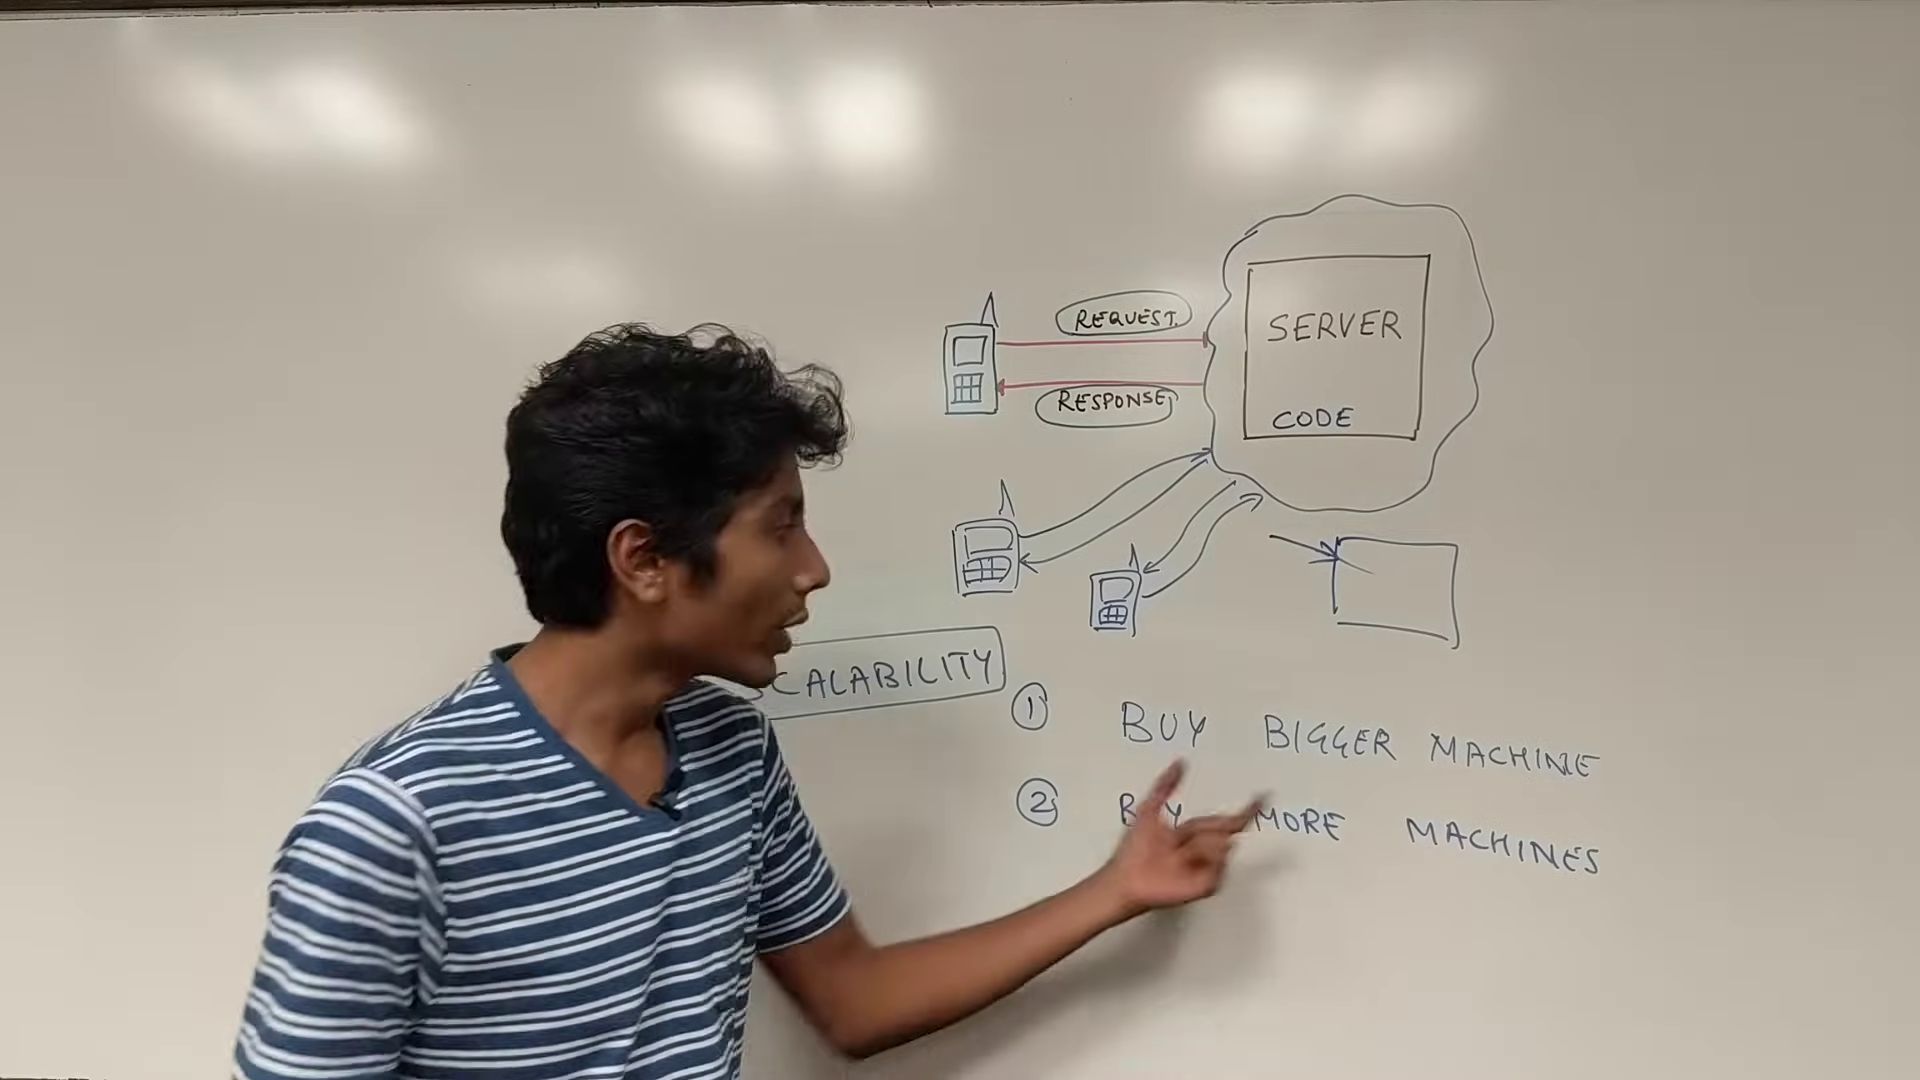 REQUEST
SERVER
RESPONSE
CODE
SCALABILITY
1 BUY BIGGER MACHINE
2 BUY MORE MACHINES